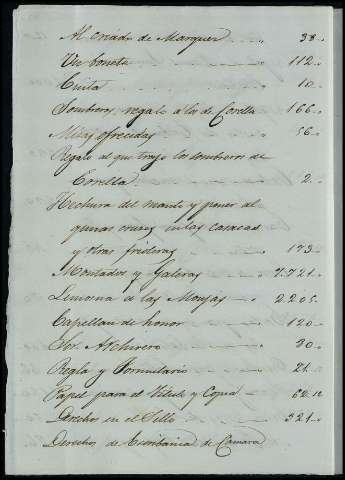 Al criado de Marquez 38.
Un bonete 112.
Cinta 10.
Sombreros, regalo á la de Corella 166.
Misas ofrecidas 56.
Regalo al que trajo los sombreros de
Corella. 2.
Hechura del manto y poner al
gunas cruces en las casacas
y otras frioleras 173.
Montados y Galeras 7.721.
Limosna a las Monjas 2.205.
Capellan de honor 120.
Sor. Archivero 30.
Regla y Formulario 21.
Papel para el Título y Copia 62.12
Derechos en el Sello 321.
Derechos de Escribanía de Camara